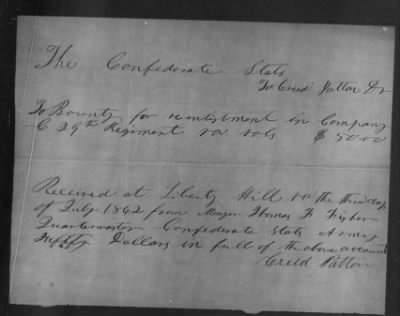 The Confederate Stats
To Creed Patton Dr
To Bounty for reinlistment in Company
C 29th Regiment va vols $ 50.00
Received at Liberty Hill va the third day
of July 1862 from Major Thomas F Fisher
Quartermaster Confederate State Army
Dollars in full of the above account
Creed Patton